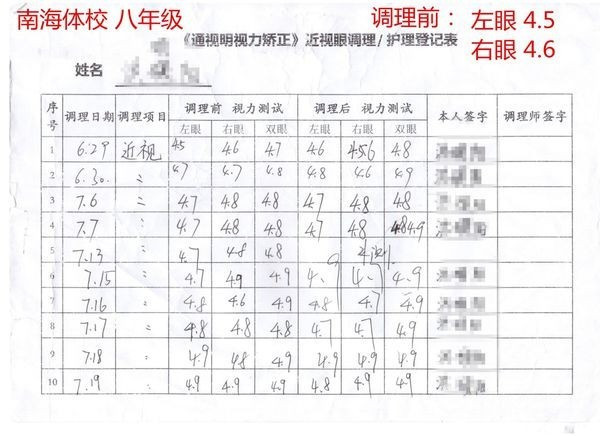 南海体校 八年级 调理前：左眼 4.5
右眼 4.6
《通视明视力矫正》近视眼调理/护理登记表
姓名
序号 调理日期 调理项目 调理前 视力测试 调理后 视力测试 本人签字 调理师签字
左眼 右眼 双眼 左眼 右眼 双眼
1 6.29 近视 4.5 4.6 4.7 4.6 4.8
2 6.30. 〃 4.7 4.7 4.8 4.8 4.6 4.9
3 7.6 〃 4.7 4.8 4.8 4.7 4.8 4.8
4 7.7 〃 4.7 4.8 4.8 4.7 4.8 4.8 4.9
5 7.13 〃 4.7 4.8 4.8
6 7.15 〃 4.7 4.9 4.9 4.9
7 7.16 〃 4.8 4.6 4.9 4.8 4.7 4.9
8 7.17 〃 4.8 4.8 4.8 4.7 4.7 4.9
9 7.18 〃 4.9 4.8 4.9 4.9 4.9 4.9
10 7.19 〃 4.9 4.9 4.9 4.8 4.9 4.9